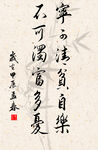 寧可清貧自樂
不可濁富多憂
歲在甲庚孟春